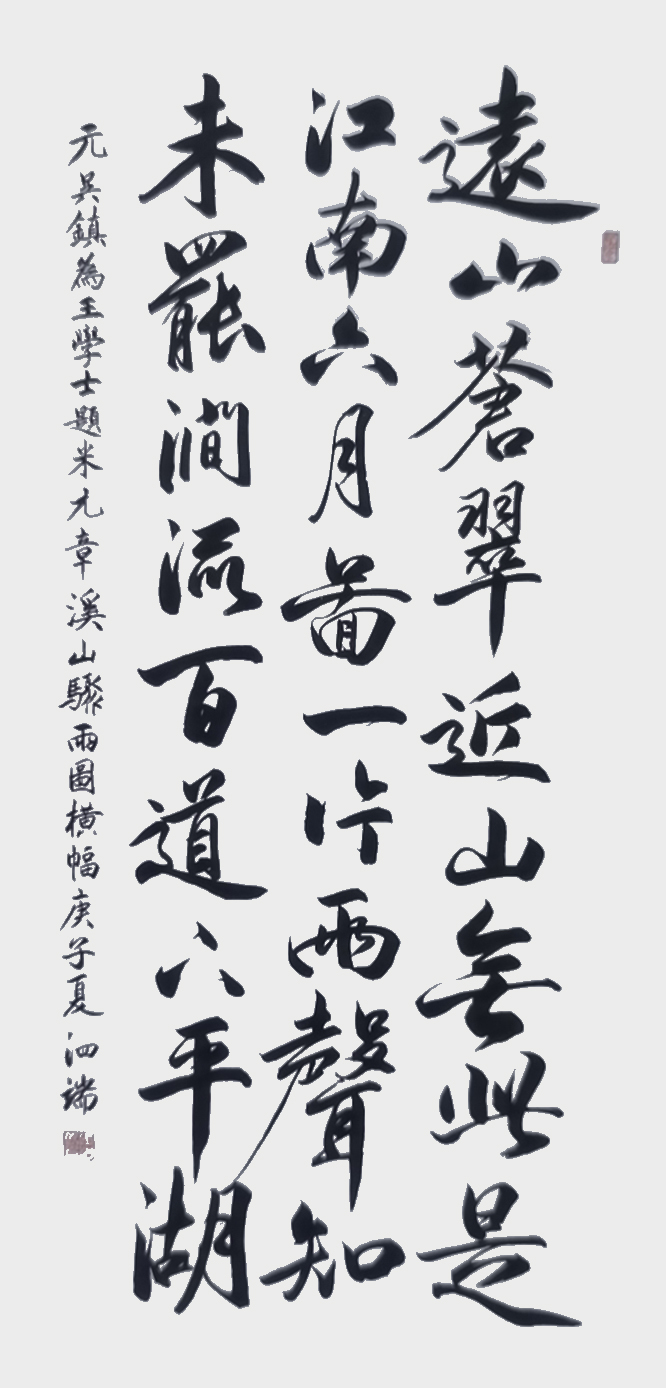 遠山蒼翠近山無此是
江南六月圖一片雨聲知
未罷澗流百道入平湖
元吳鎮為王學士題米元章溪山驟雨圖橫幅庚子夏泗端